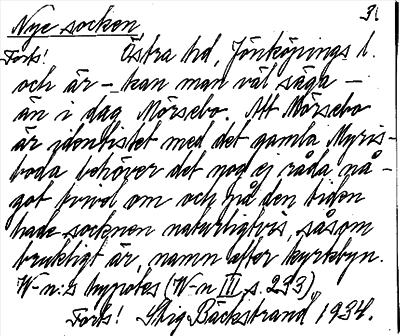 Nye socken 3.
Forts! Östra hd, Jönköpings l.
och är – kan man väl säga –
än i dag Mörsebo. Att Mörsebo
är identiskt med det gamla Myris-
boda behöver det nog ej råda nå-
got tvivel om och på den tiden
hade socknen naturligtvis, såsom
brukligt är, namn efter kyrkbyn.
W-n:s hypotes (W-n III s. 233)
Forts! Stig Bäckstrand, 1934.